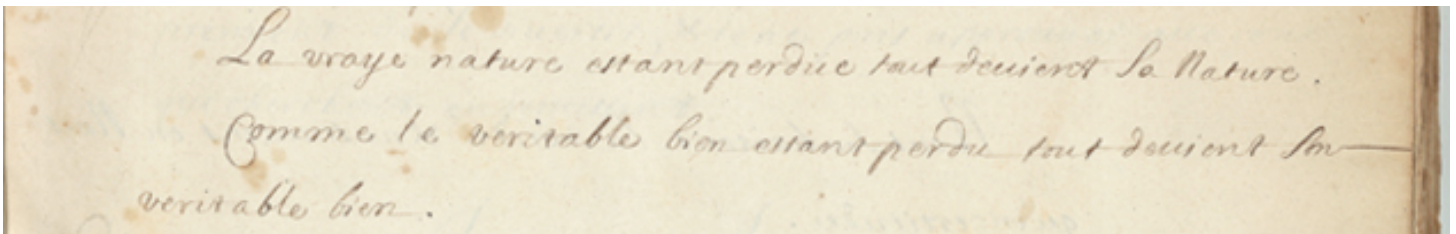 La vraye nature estant perdüe tout deuient Sa Nature.
Comme le veritable bien estant perdu tout deuient son
veritable bien.